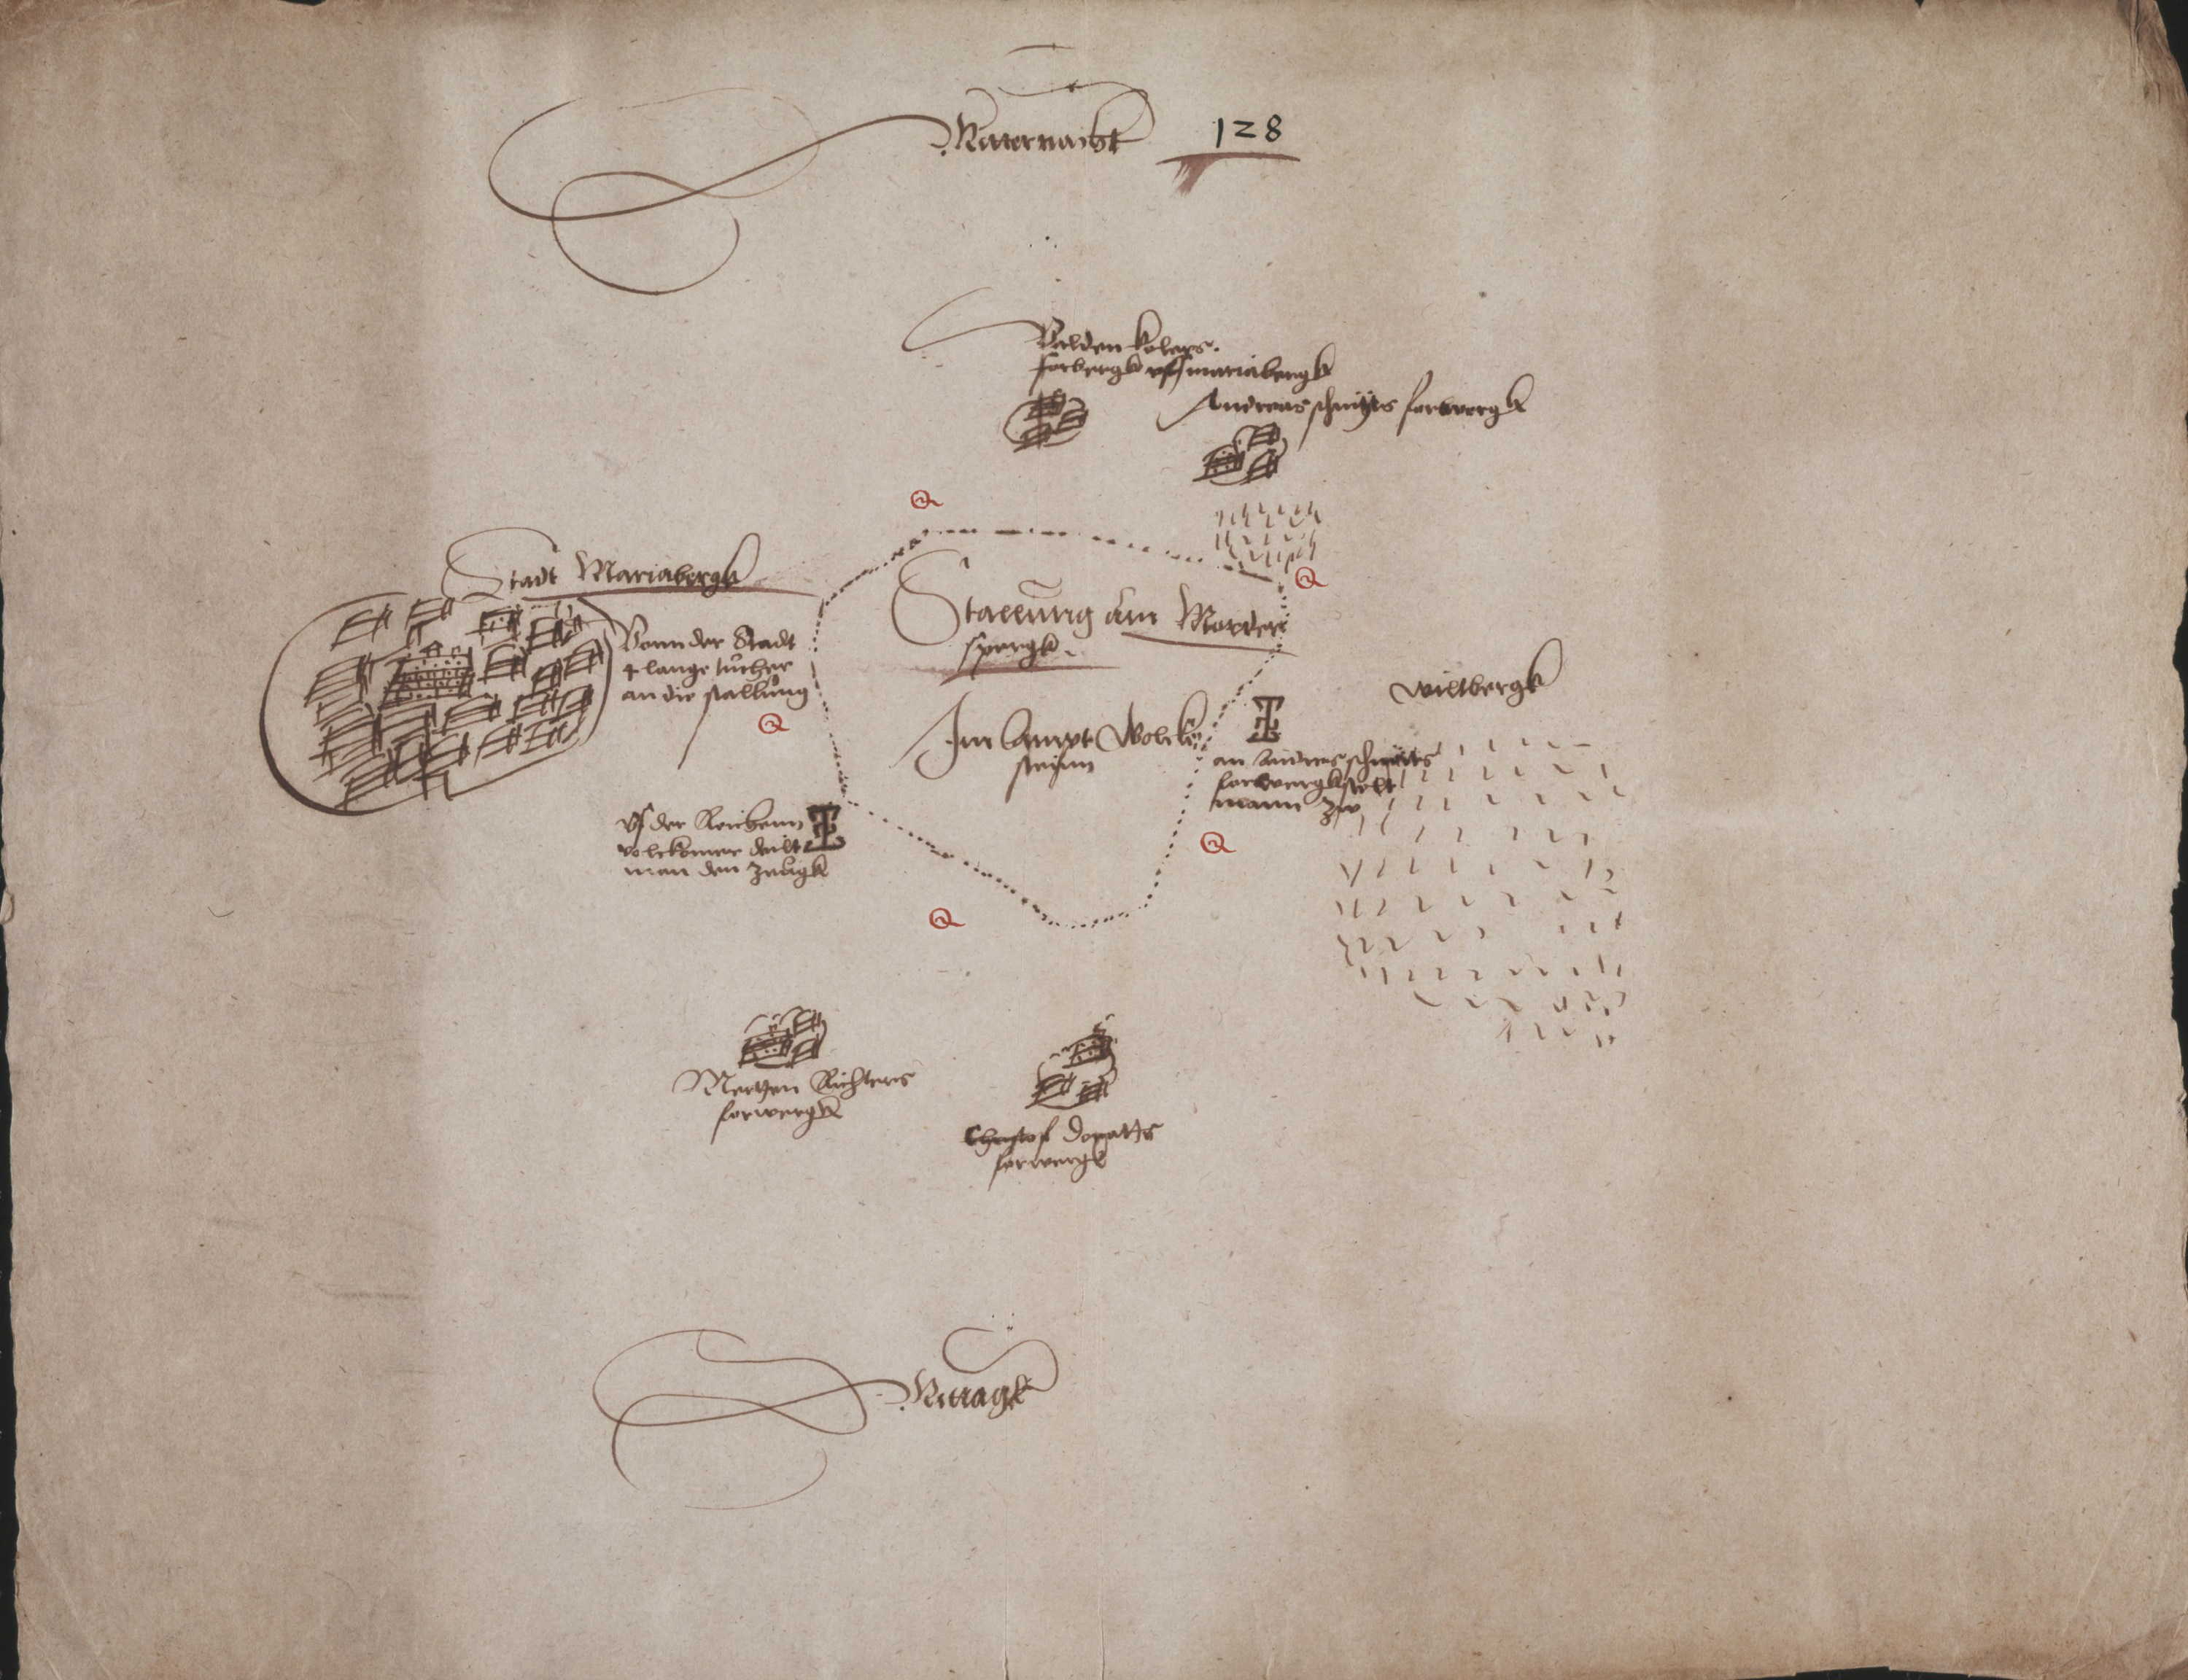 Mitternacht
128
Valden Kolers
forbergk uff mariabergk
Andreas schmids forwergk
Stadt Mariabergk
Vonn der Stadt
4 lange tucher
an die stallung
Stallung am Morder
spergk
Im Ampt Wolcken
steinn
wiltbergk
an Andres schmits
forwergk stelt
mann zw
Uf der Reichenn
volkomene deilt
man den zeugk
Mertzen Richters
forwergk
Christof Donatts
forwergk
Mittagk